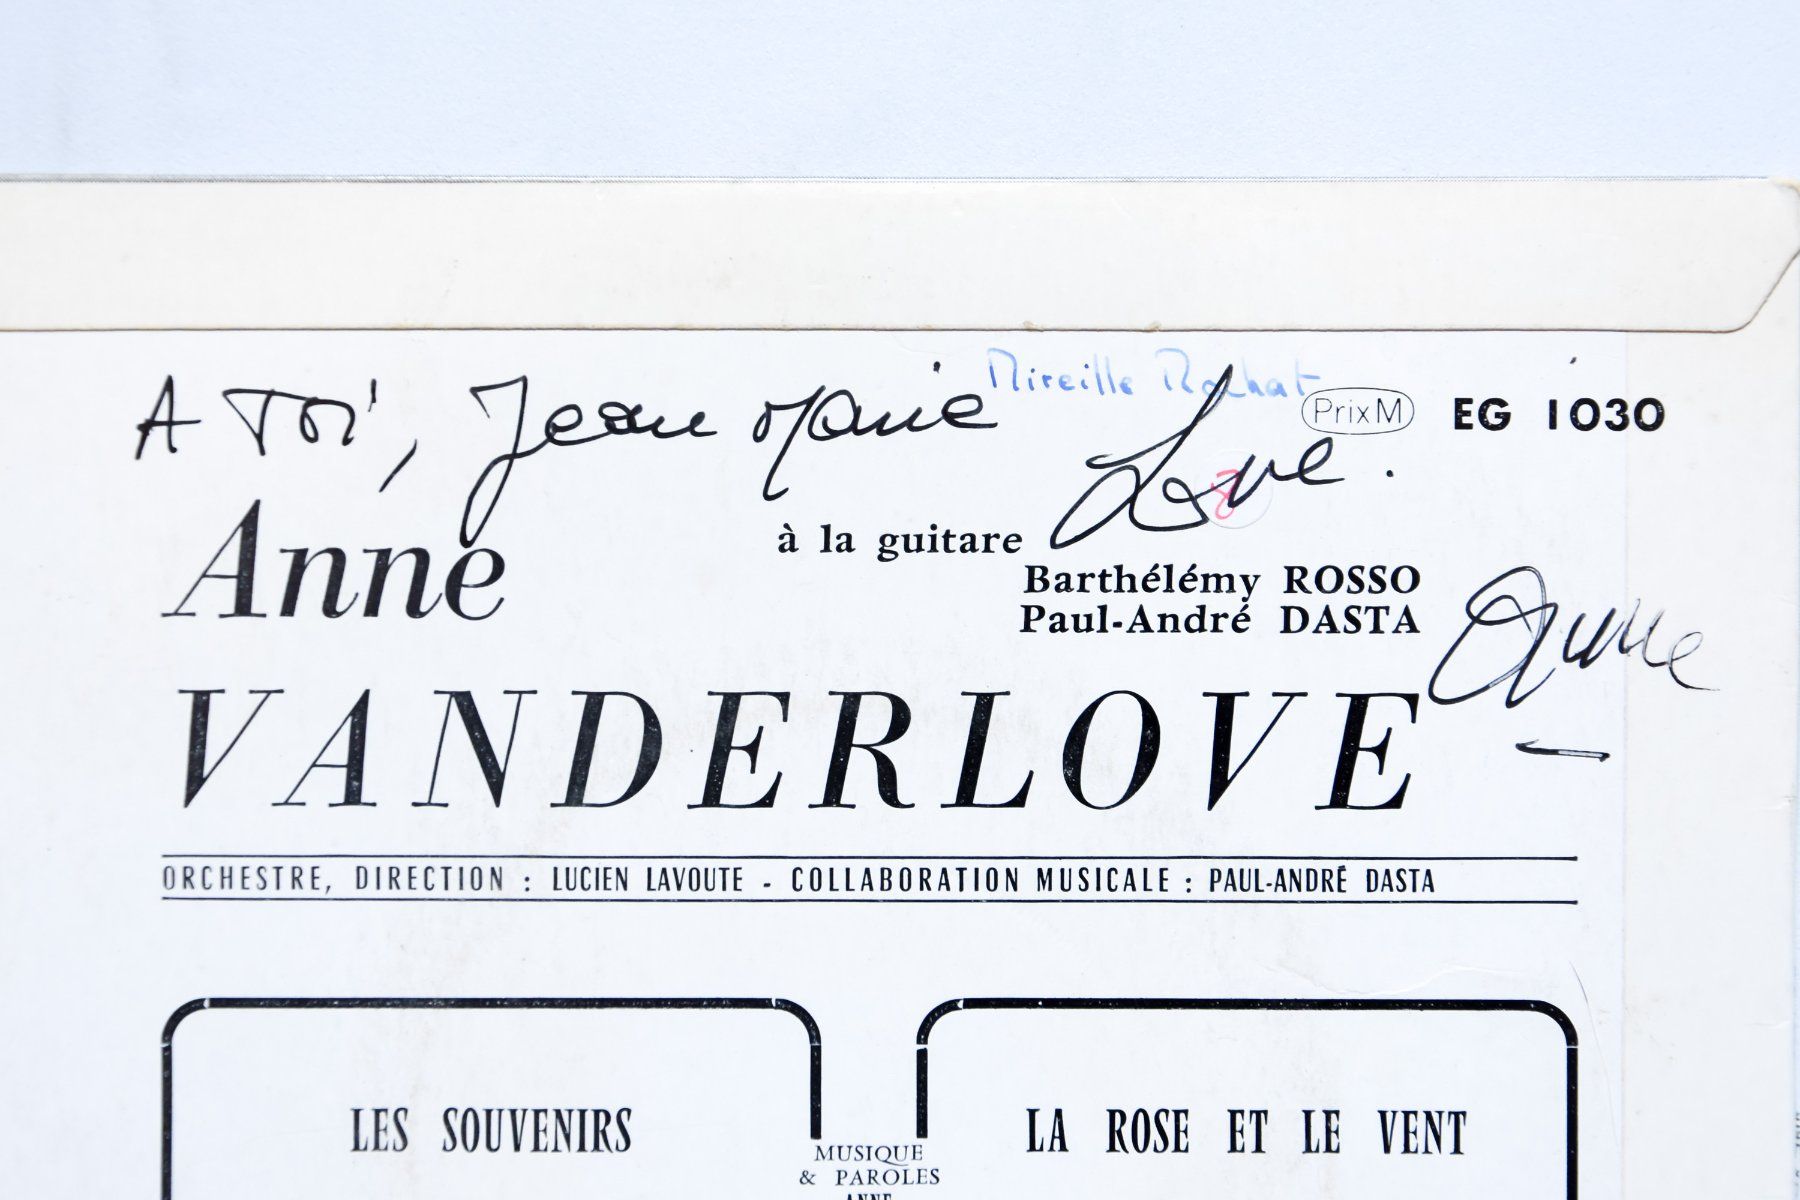 Mireille Rochat
A Toi, Jean Marie
PrixM EG 1030
Love.
8
à la guitare
Anne
Barthélémy ROSSO
Paul-André DASTA
Anne
VANDERLOVE
ORCHESTRE, DIRECTION : LUCIEN LAVOUTE - COLLABORATION MUSICALE : PAUL-ANDRÉ DASTA
LES SOUVENIRS
LA ROSE ET LE VENT
MUSIQUE
& PAROLES
ANNE